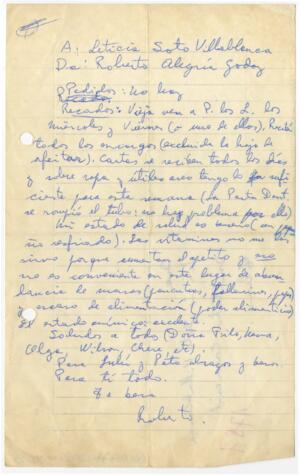 A: Leticia Soto Villablanca
De: Roberto Alegría Godoy
Pedidos: no hay
Recados: Vieja ven a P. los L. los
miércoles y Viernes (o uno de ellos), Recibí
todos los encargos (excluida la hoja de
afeitar). Cartas se reciben todos los días
y sobre ropa y útiles creo tengo lo sufi
ciente para esta semana (La Pasta Dent.
se rompió el tubo: no hay problema por ello)
Mi estado de salud es bueno (un
resfriado). Las vitaminas no me
sirven porque aumentan el apetito y no
no es conveniente en este lugar de abun
dancia de masas (
escaso de alimentación (poder alimenticio)
El estado anímico: excelente.
Saludos a todos (Doña
Olga, Wilson, etc)
Para abrazos y besos
Para ti todo.
Te besa
Roberto.